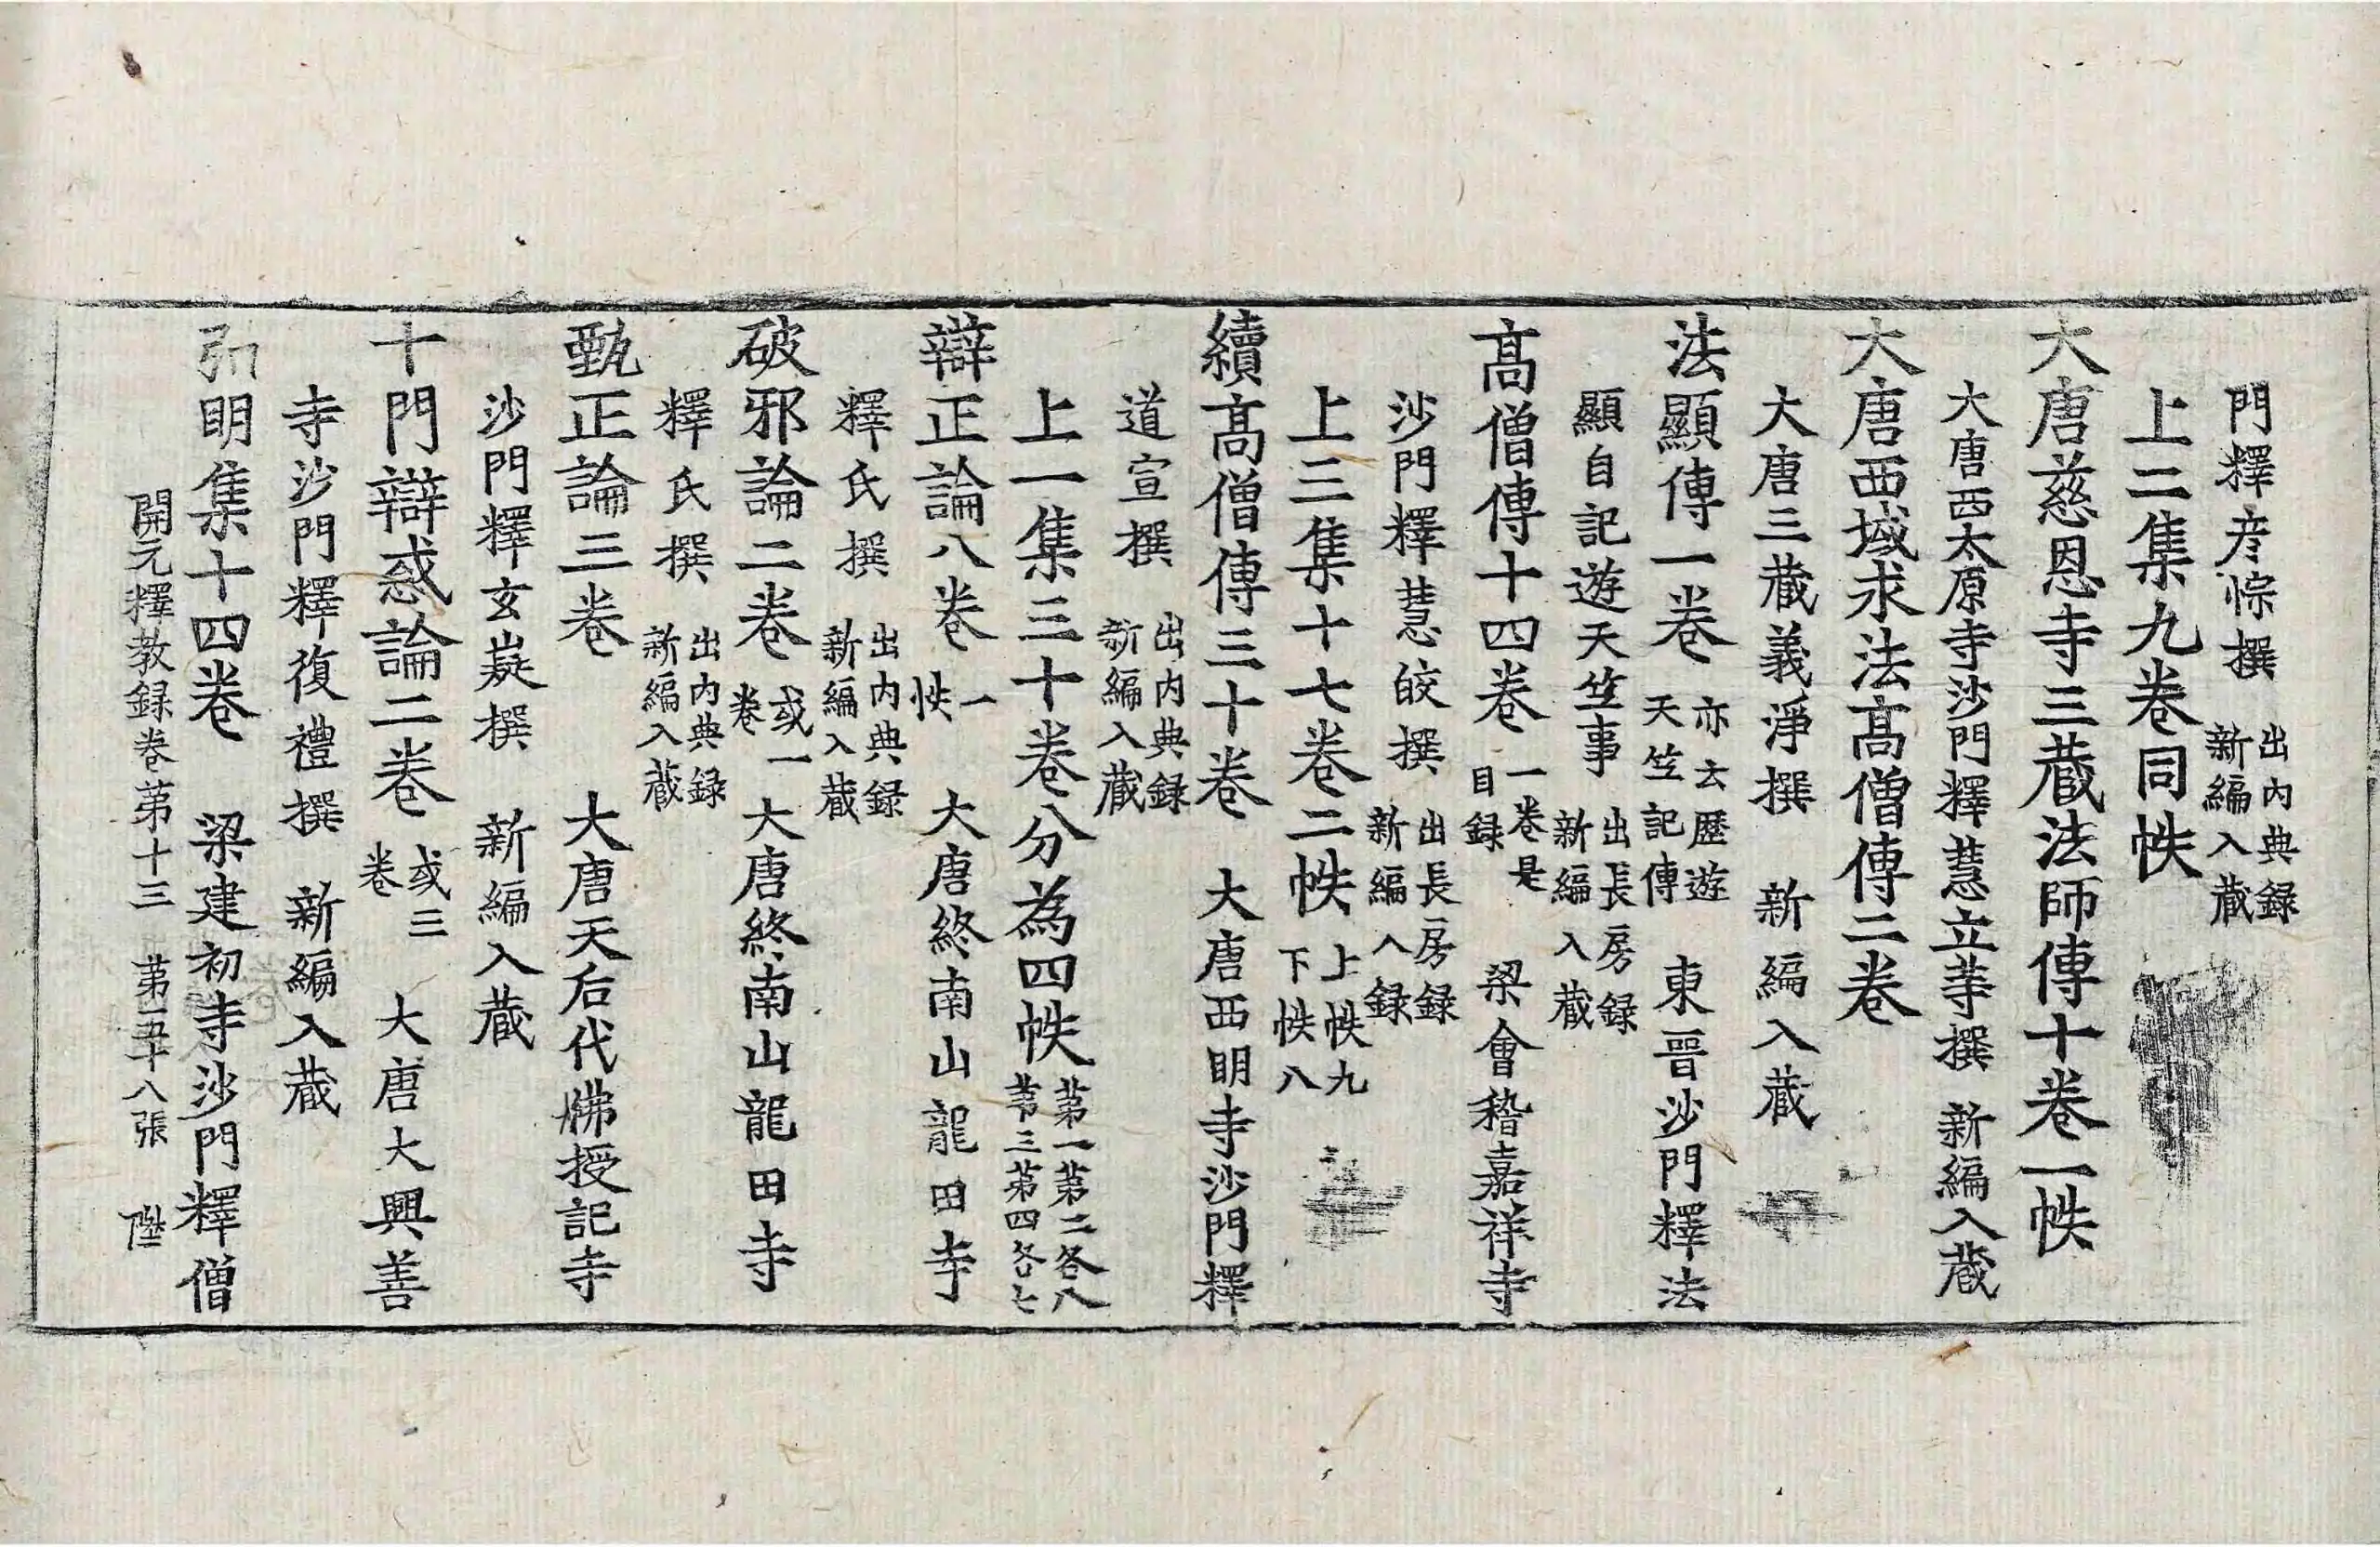 門釋彦悰撰 出內典録新編入蔵
上二集九卷同帙
大唐慈恩寺三蔵法師傳十卷一帙
大唐西太原寺沙門釋慧立等撰 新編入蔵
大唐西域求法高僧傳二卷
大唐三蔵義淨撰 新編入蔵
法顯傳一卷 亦云歷遊天竺記傳 東晉沙門釋法
顯自記遊天竺事 出長房録新編入蔵
高僧傳十四卷 一卷是目録 梁會稽嘉祥寺
沙門釋慧皎撰 出長房録新編入録
上三集十七卷二帙 上帙九下帙八
續高僧傳三十卷 大唐西明寺沙門釋
道宣撰 出內典録新編入蔵
上一集三十卷分為四帙 第一第二各八第三第四各七
辯正論八卷 一帙 大唐終南山龍田寺
釋氏撰 出內典録新編入蔵
破邪論二卷 或一卷 大唐終南山龍田寺
釋氏撰 出內典録新編入蔵
甄正論三卷 大唐天后代佛授記寺
沙門釋玄嶷撰 新編入蔵
十門辯惑論二卷 或三卷 大唐大興善
寺沙門釋復禮撰 新編入蔵
弘明集十四卷 梁建初寺沙門釋僧
開元釋教録卷第十三 第二十八張 陞